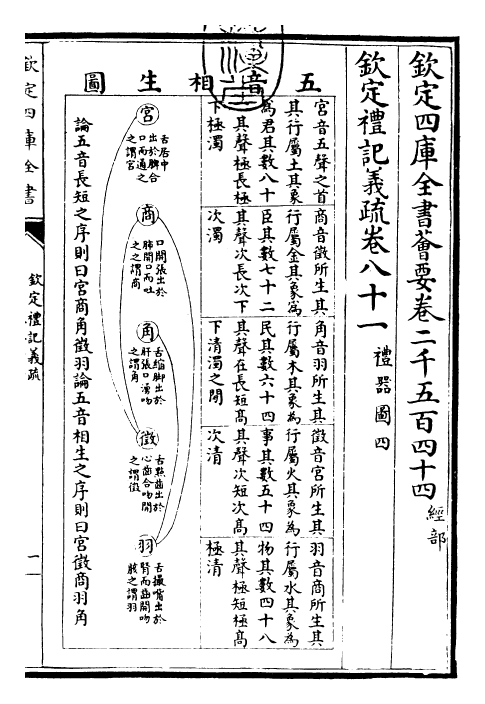 欽定四庫全書薈要卷二千五百四十四 經部
欽定禮記義疏卷八十一 禮器圖四
五音相生圖
宮音五聲之首
其行屬土其象
為君其數八十
一其聲極長極
下極濁
商音徵所生其
行屬金其象為
臣其數七十二
其聲次長次下
次濁
角音羽所生其
行屬木其象為
民其數六十四
其聲在長短高
下清濁之間
徵音宮所生其
行屬火其象為
事其數五十四
其聲次短次高
次清
羽音商所生其
行屬水其象為
物其數四十八
其聲極短極高
極清
宮
舌居中
出於脾合
口而通之
之謂宮
商
口開張出於
肺開口而吐
之之謂商
角
舌縮脚出於
肝張口湧吻
之謂角
徵
舌㸃齒出於
心齒合吻開
之謂徵
羽
舌撮嘴出於
腎而齒開吻
聚之謂羽
論五音長短之序則曰宮商角徵羽論五音相生之序則曰宮徵商羽角
欽定四庫全書
欽定禮記義疏
一